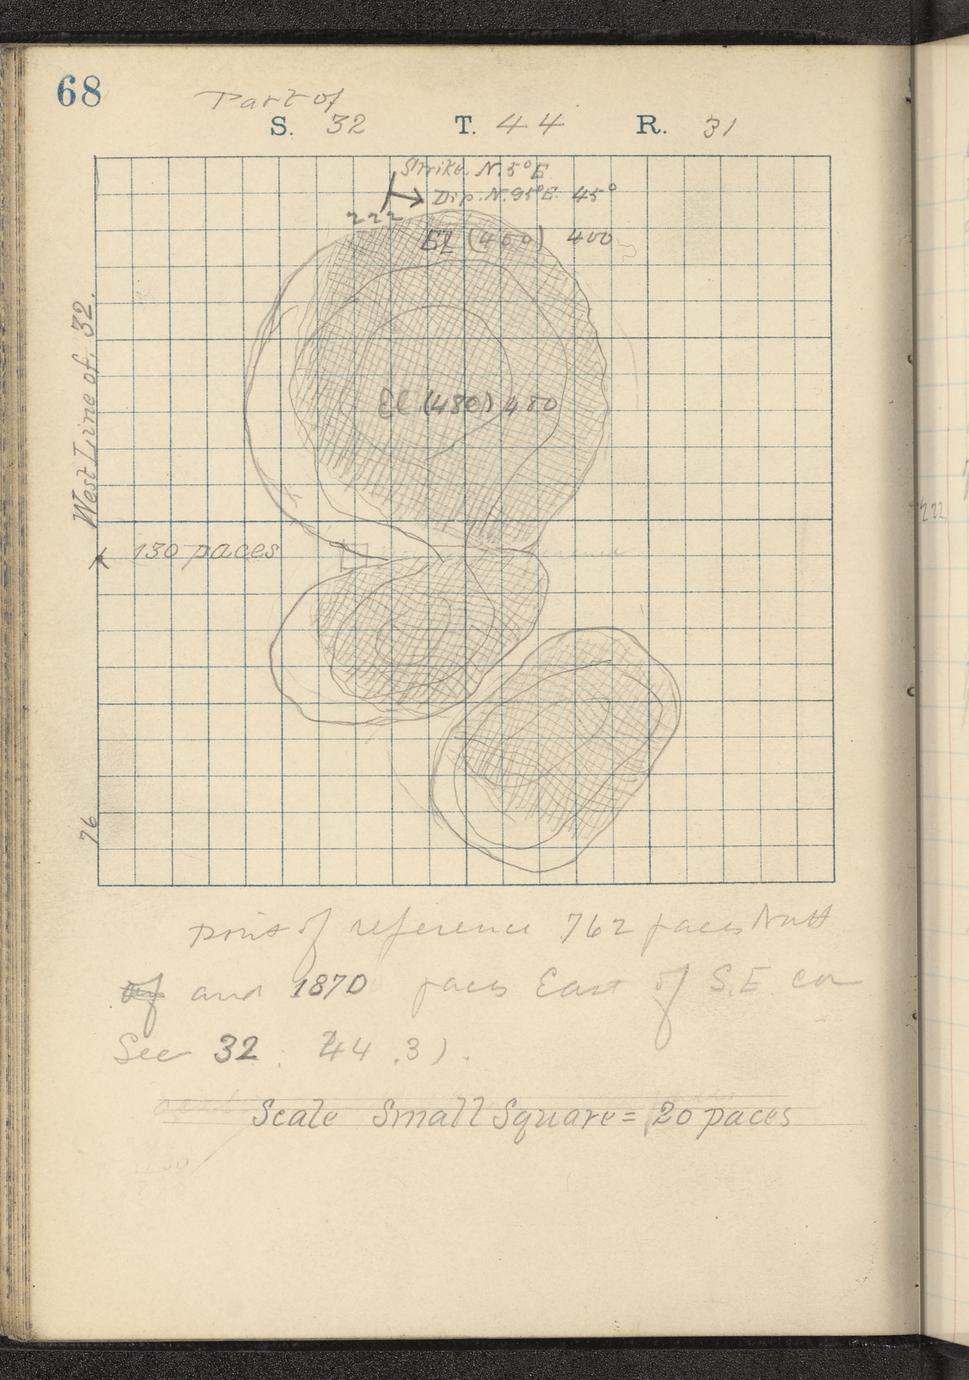 68
Part of
S. 32 T. 44 R. 31
Strike. N. 5° E
Dip. N. 95° E. 45°
222
El (400) 400
West Line of. 32.
El (480) 480
130 paces
76
Point of reference 762 paces North
of and 1870 paces East of S.E cor
Sec 32. 44.31.
Scale Small Square = 20 paces
222